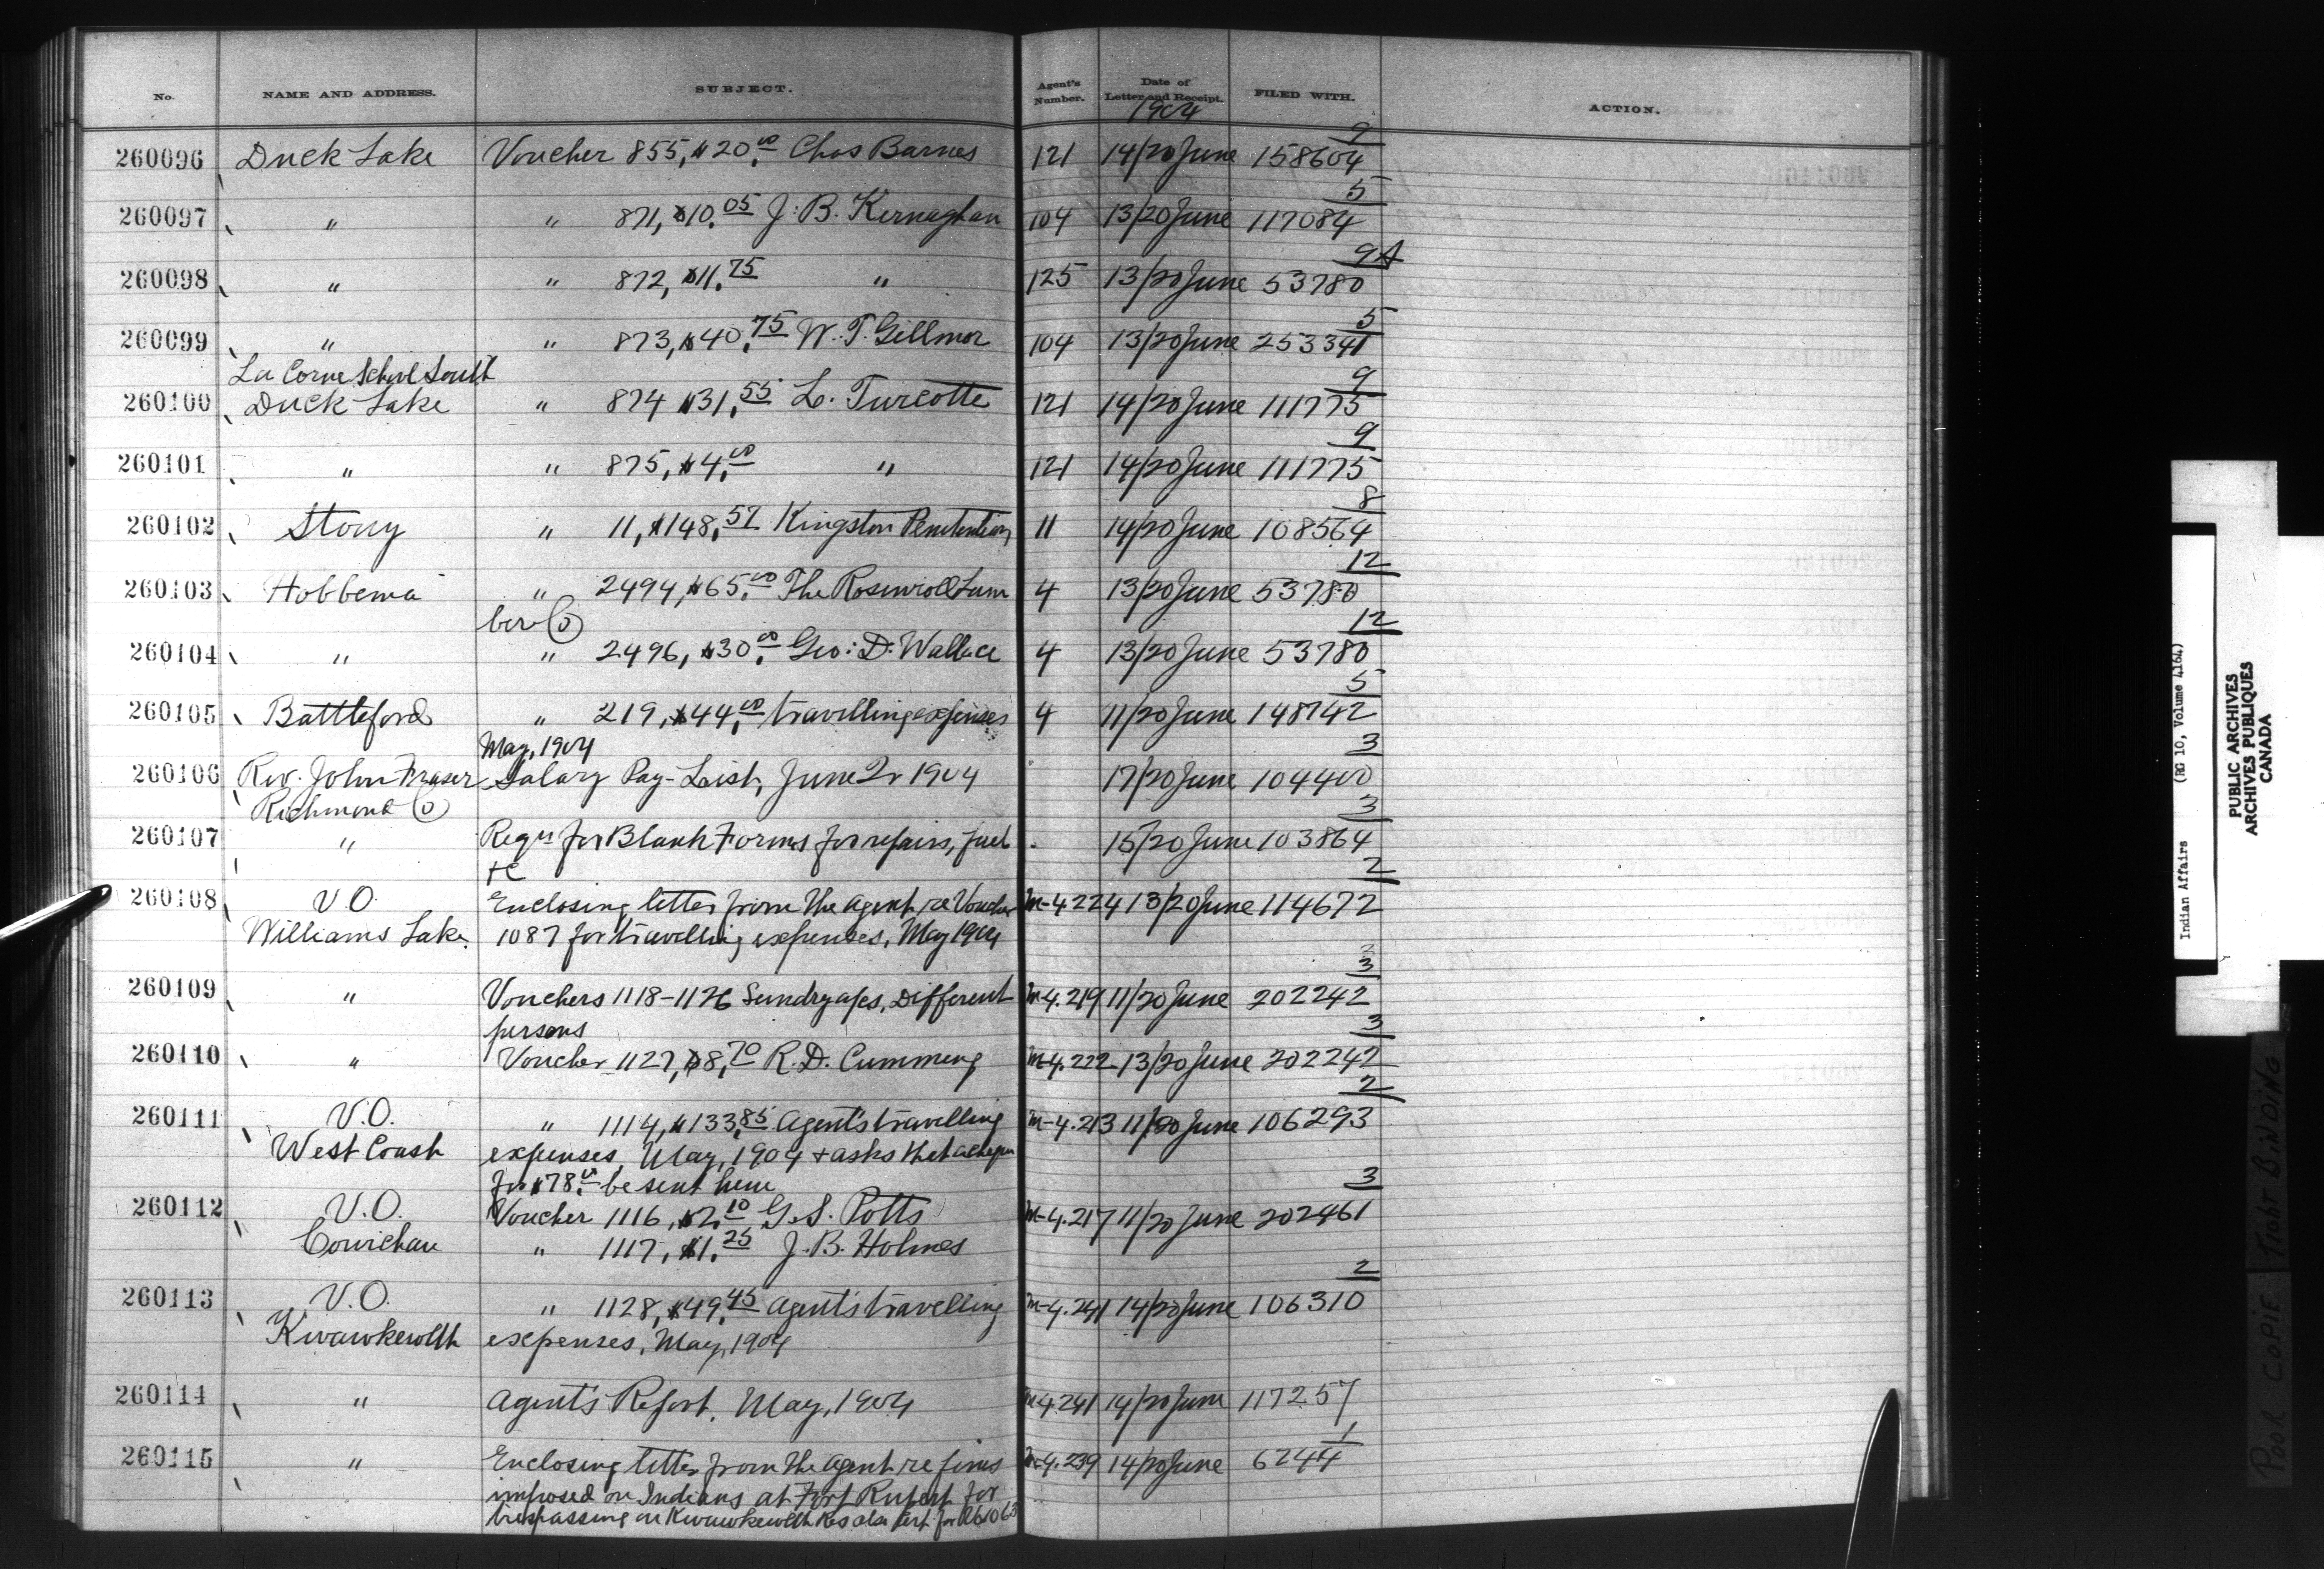 No. NAME AND ADDRESS. SUBJECT. Agent's Number. Date of Letter and Receipt. FILED WITH. ACTION.
1904
9
260096 Duck Lake Voucher 855, $20.00 Chas Barnes 121 14/20 June 158604
5
260097 " " 871, $10.05 J. B. Kernaghan 104 13/20 June 117084
9A
260098 " " 872, $11.75 " 125 13/20 June 53780
5
260099 " " 873, $40.75 W. T. Gillmor 104 13/20 June 253341
La Corne School South
9
260100 Duck Lake " 874 $31.55 L. Turcotte 121 14/20 June 111775
9
260101 " " 875, $4.00 " 121 14/20 June 111775
8
260102 Stony " 11, $148.57 Kingston Penitentiary 11 14/20 June 108564
12
260103 Hobbema " 2494, $65.00 The Rosenroll Lum 4 13/20 June 53780
ber Co
12
260104 " " 2496, $30.00 Geo: D. Wallace 4 13/20 June 53780
5
260105 Battleford " 219, $44.00 travelling expenses 4 11/20 June 148742
May, 1904
3
260106 Rev. John Fraser Salary Pay-List, June Qr 1904 17/20 June 104400
Richmond Co
3
260107 " Reqn for Blank Forms for repairs, fuel 15/20 June 103864
+c
2
260108 V.O. Enclosing letter from the agent re Voucher M-4224 13/20 June 114672
Williams Lake. 1087 for travelling expenses, May 1904
3
260109 " Vouchers 1118-1126 Sundry a/cs, Different M-4.219 11/20 June 202242
persons
3
260110 " Voucher 1127, $8.70 R. D. Cumming M-4.222 13/20 June 202242
2
260111 V.O. " 1114, $133.85 Agent's travelling M-4.213 11/20 June 106293
West Coast expenses, May, 1904 + asks that a cheque
for $78.00 be sent him
3
260112 V.O. Voucher 1116, $2.10 G. S. Potts M-4.217 11/20 June 202461
Cowichan " 1117, $1.25 J. B. Holmes
2
260113 V.O. " 1128, $49.45 Agent's travelling M-4.241 14/20 June 106310
Kwawkewlth expenses, May, 1904
260114 " Agent's Report, May, 1904 M-4.241 14/20 June 117257
1
260115 " Enclosing letter from the agent re fines M-4.239 14/20 June 6244
imposed on Indians at Fort Rupert for
trespassing on Kwawkewlth Res also
Indian Affairs (RG 10, Volume 4164)
PUBLIC ARCHIVES
ARCHIVES PUBLIQUES
CANADA
POOR COPIE TIGHT BINDING